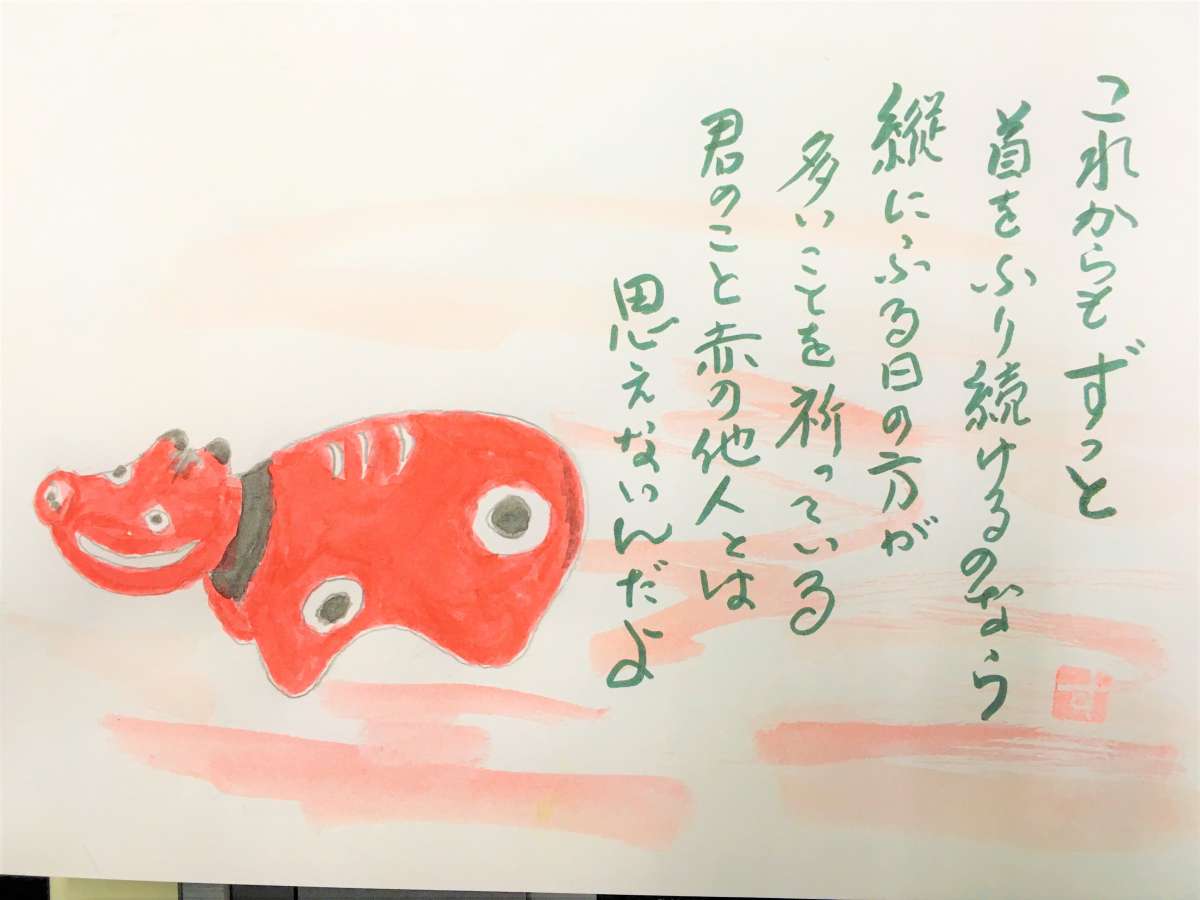 これからもずっと
首をふり続けるのなら
縦にふる日の方が
多いことを祈っている
君のこと赤の他人とは
思えないんだよ